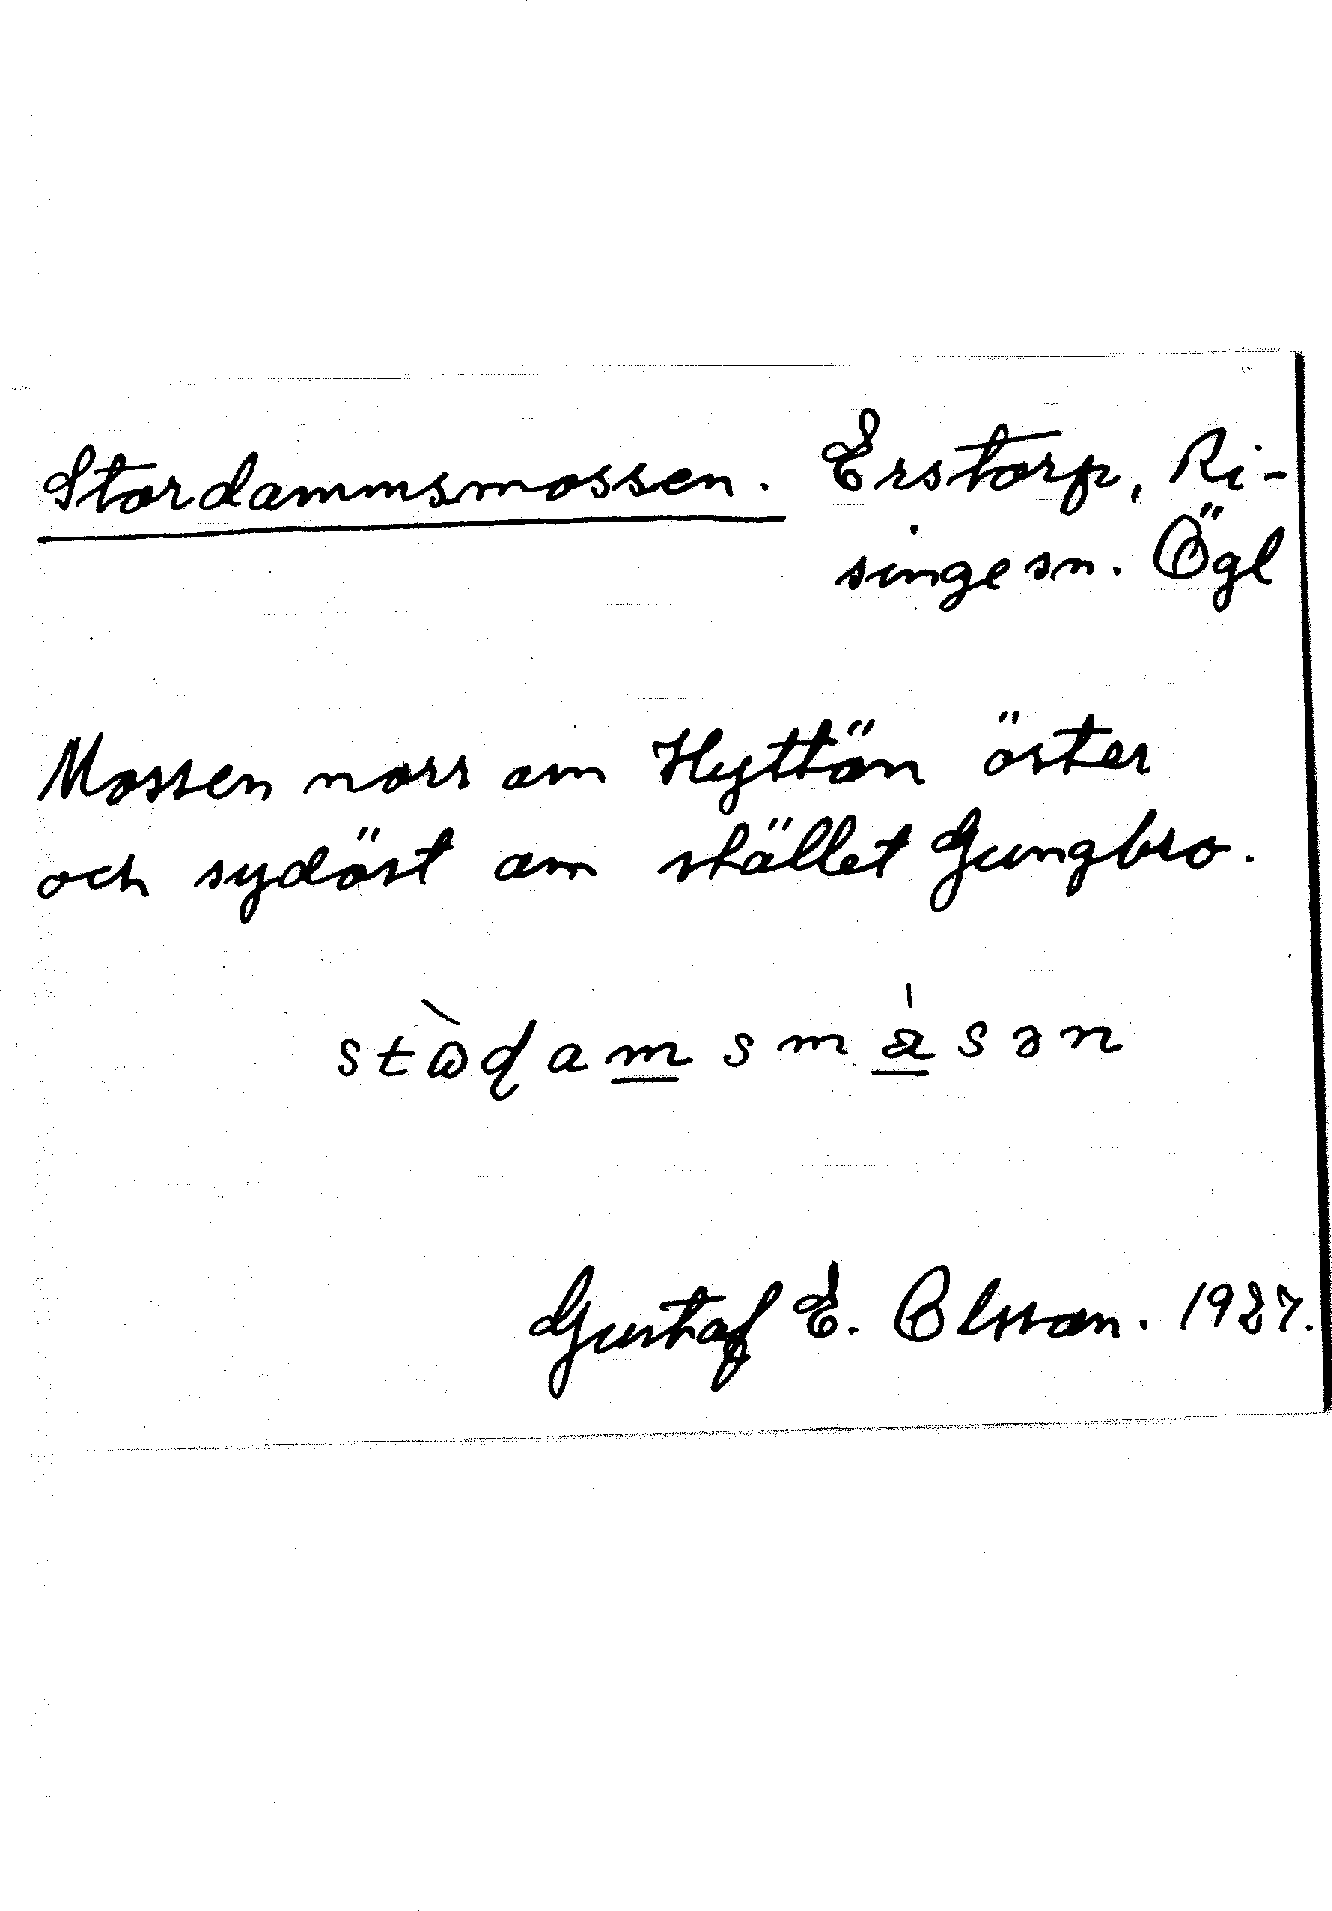 Stordammsmossen. Erstorp, Ri-
singe sn. Ögl
Mossen norr om Hyttön öster
och sydöst om stället Gungbro.
Gustaf E. Olsson. 1927.